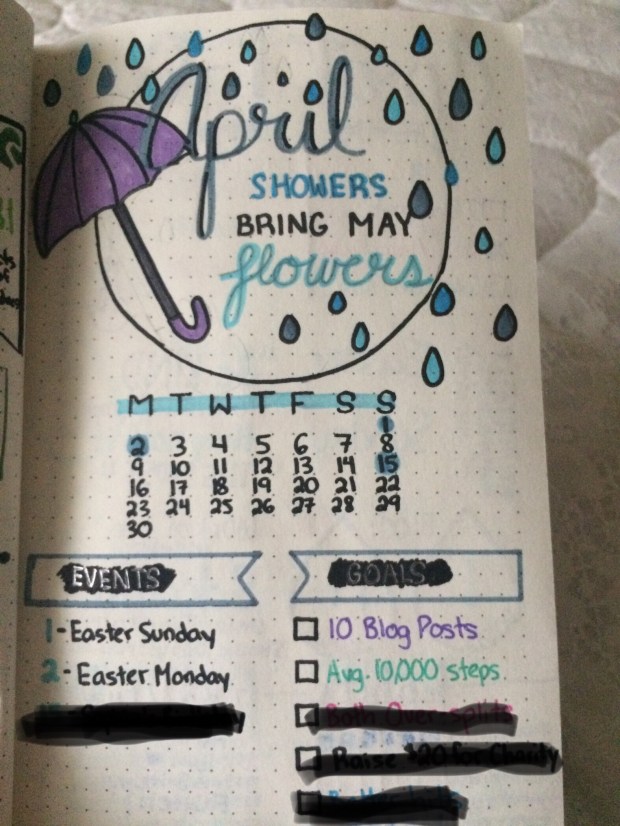 April
SHOWERS
BRING MAY
flowers
M T W T F S S
1
2 3 4 5 6 7 8
9 10 11 12 13 14 15
16 17 18 19 20 21 22
23 24 25 26 27 28 29
30
EVENTS
GOALS
1 - Easter Sunday
2 - Easter Monday
10 Blog Posts
Avg. 10,000 steps
Both Over-splits
Raise $20 for Charity